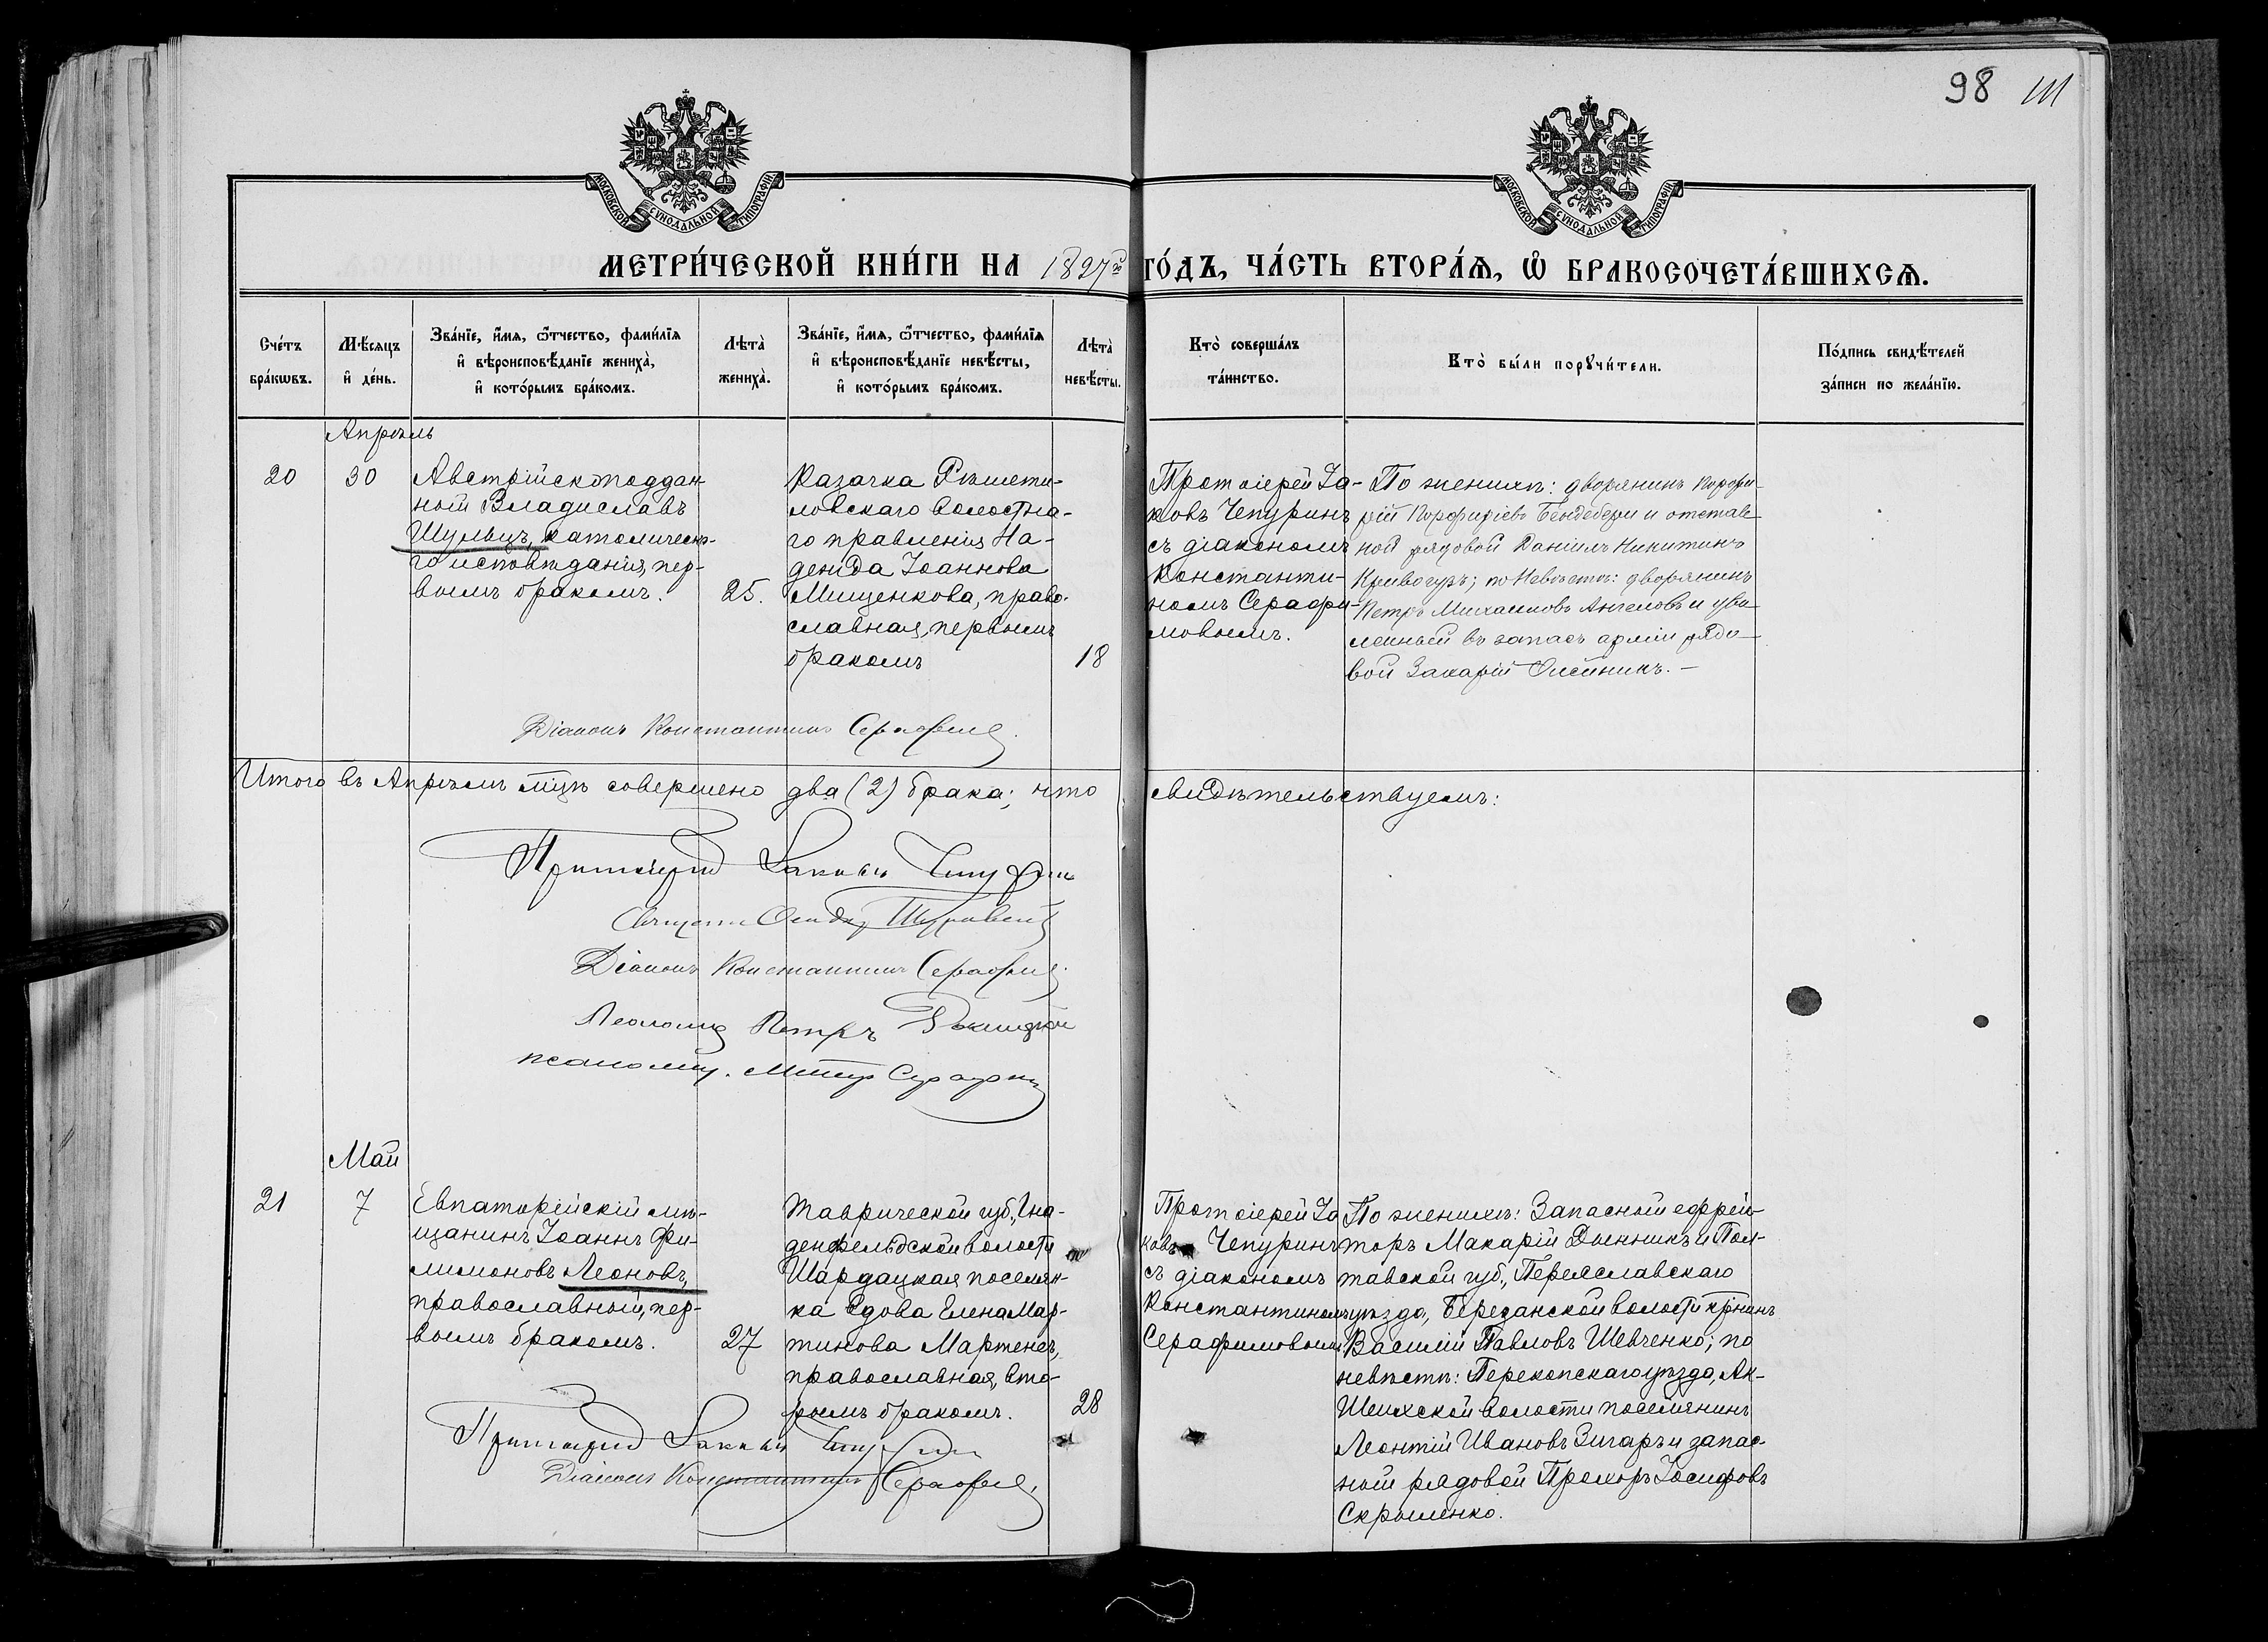 98 111
МОСКОВСКОЙ СѴНОДАЛЬНОЙ ТИПОГРАФІИ
МОСКОВСКОЙ СѴНОДАЛЬНОЙ ТИПОГРАФІИ
МЕТРИ́ЧЕСКОЙ КНИ́ГИ НА 1897й ГО́ДЪ, ЧА́СТЬ ВТОРА́Ѧ, Ѡ҆ БРАКОСОЧЕТА́ВШИХСѦ.
Сче́тъ бра́кѡвъ.
Мѣ́сяцъ и҆ де́нь.
Зва́нїе, и҆́мя, ѻ҆́тчество, фами́лїя и҆ вѣроисповѣ́данїе жениха̀, и҆ кото́рымъ бра́комъ.
Лѣта̀ жениха̀.
Зва́нїе, и҆́мя, ѻ҆́тчество, фами́лїя и҆ вѣроисповѣ́данїе невѣ́сты, и҆ кото́рымъ бра́комъ.
Лѣта̀ невѣ́сты.
Кто̀ соверша́лъ та́инство.
Кто̀ бы́ли порꙋчи́тели.
По́дпись свидѣ́телей за́писи по жела́нїю.
Апрѣль
20
30
Австрійскоподдан
ный Владиславъ
Шульцъ, католическа-
го исповѣданія, пер-
вымъ бракомъ.
25.
Казачка Рѣшети-
ловскаго волостна-
го правленія На-
дежда Іоаннова
Мищенкова, право-
славная, первымъ
бракомъ
18
Протоіерей Іа-
ковъ Чепуринъ
съ діакономъ
Константи-
номъ Серафи-
мовымъ.
По женихѣ: дворянинъ Порфи-
рій Порфиріевъ и отстав-
ной рядовой Даніилъ Никитинъ
Кривогузъ; по Невѣстѣ: дворянинъ
Петръ Михаиловъ Ангеловъ и уво-
ленный въ запасъ арміи рядо-
вой Захарій Олейникъ. —
Діаконъ Константинъ Серафимо
Итого въ Апрѣлѣ мцѣ совершено два (2) брака; что свидѣтельствуемъ:
Протоіерей Іаковъ Чепуринъ
Діаконъ Константинъ Серафимо
Псаломщ Петръ
псаломщ.
Май
21
7
Евпаторійскій мѣ-
щанинъ Іоаннъ Фи-
лимоновъ Леоновъ,
православный, пер-
вымъ бракомъ.
27
Таврической губ., Гна-
денфельдской волости
Шардауская поселян-
ка вдова Елена Мар-
тинова Мартенсъ,
православная, вто-
рымъ бракомъ.
28
Протоіерей Іа
ковъ Чепуринъ
съ діакономъ
Константиномъ
Серафимовымъ
По женихѣ: Запасной ефрей-
торъ Макарій и Пол-
тавской губ., Переяславскаго
уѣзда, Березанской волости крнинъ
Василій Павловъ Шевченко; по
невѣстѣ: Перекопскаго уѣзда, Ак-
Шеихской волости поселянинъ
Леонтій Ивановъ и запас-
ной рядовой Прохоръ Іосифовъ
Скрыленко.
Протоіерей Іаковъ Чепуринъ
Діаконъ Константинъ Серафимо